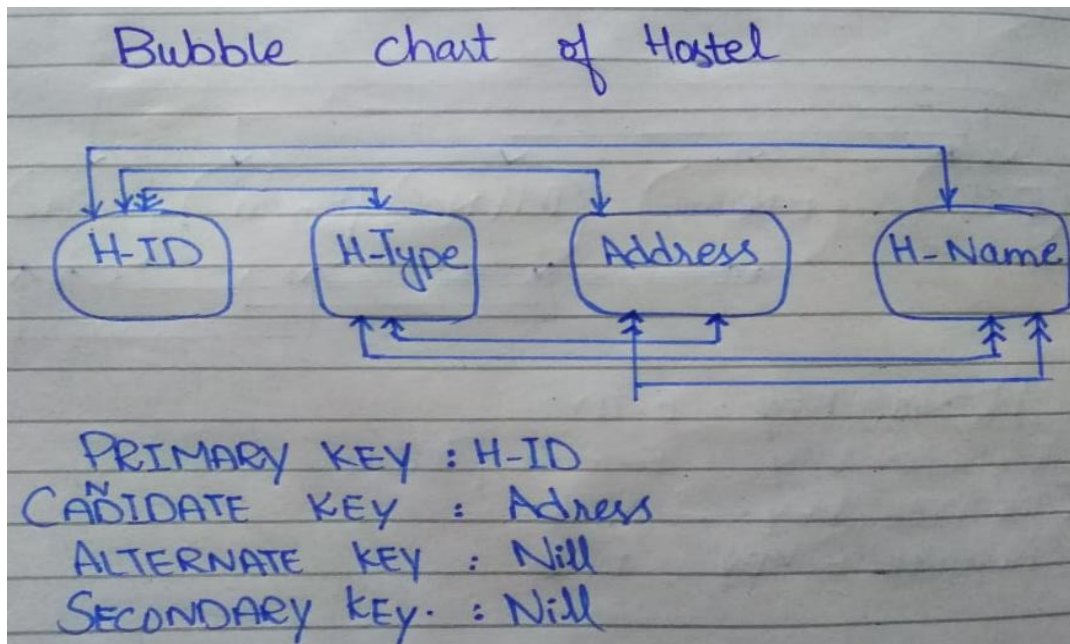 Bubble Chart of Hostel
H-ID H-Type Address H-Name
PRIMARY KEY : H-ID
CAÑIDATE KEY : Adress
ALTERNATE KEY : Nill
SECONDARY KEY. : Nill